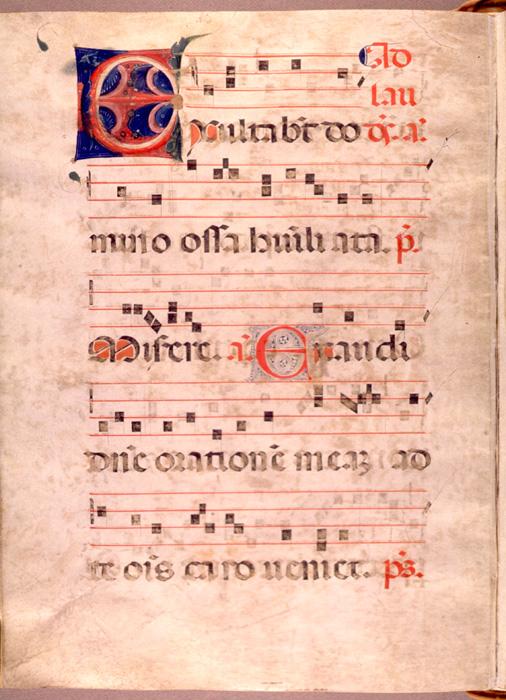 Ad
lau
Exultabūt do
mino ossa humili ata. p̄.
Misere. a. Exaudi
dn̄e orationē meaʒ ad
te oīs caro veniet. ps̄.